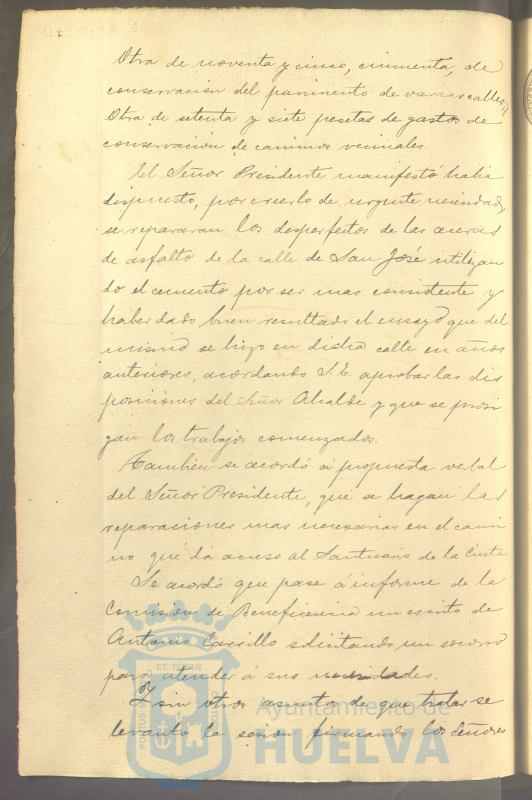 Otra de noventa y cinco, cincuenta, de
conservacion del pavimento de varias calles y
Otra de setenta y siete pesetas de gastos de
conservacion de caminos vecinales.
El Señor Presidente manifestó habia
dispuesto, por creerlo de urgente necesidad,
se repararan los desperfectos de las aceras
de asfalto de la calle de San José utilizan
do el cemento por ser mas consistente y
haber dado buen resultado el ensayo que del
mismo se hizo en dicha calle en años
anteriores, acordando S.E. aprobar las dis
posiciones del Señor Alcalde y que se prosi
gan los trabajos comenzados.
Tambien se acordó á propuesta verbal
del Señor Presidente, que se hagan las
reparaciones mas necesarias en el cami
no que dá acceso al Santuario de la Cinta.
Se acordó que pase á informe de la
Comision de Beneficencia un escrito de
Antonio Carrillo solicitando un socorro
para atender á sus necesidades.
Y sin otros asuntos de que tratar se
levantó la sesion firmando los Señores
ET TERRÆ
PORTUS
CUSTODIA
Ayuntamiento de
HUELVA